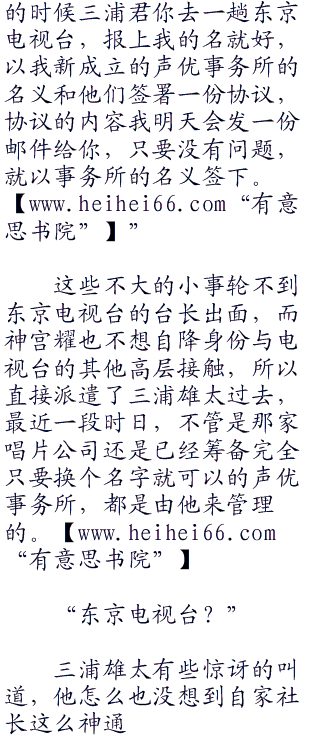 的时候三浦君你去一趟东京
电视台，报上我的名就好，
以我新成立的声优事务所的
名义和他们签署一份协议，
协议的内容我明天会发一份
邮件给你，只要没有问题，
就以事务所的名义签下。
【www.heihei66.com“有意
思书院”】”
这些不大的小事轮不到
东京电视台的台长出面，而
神宫耀也不想自降身份与电
视台的其他高层接触，所以
直接派遣了三浦雄太过去，
最近一段时日，不管是那家
唱片公司还是已经筹备完全
只要换个名字就可以的声优
事务所，都是由他来管理
的。【www.heihei66.com
“有意思书院”】
“东京电视台？”
三浦雄太有些惊讶的叫
道，他怎么也没想到自家社
长这么神通